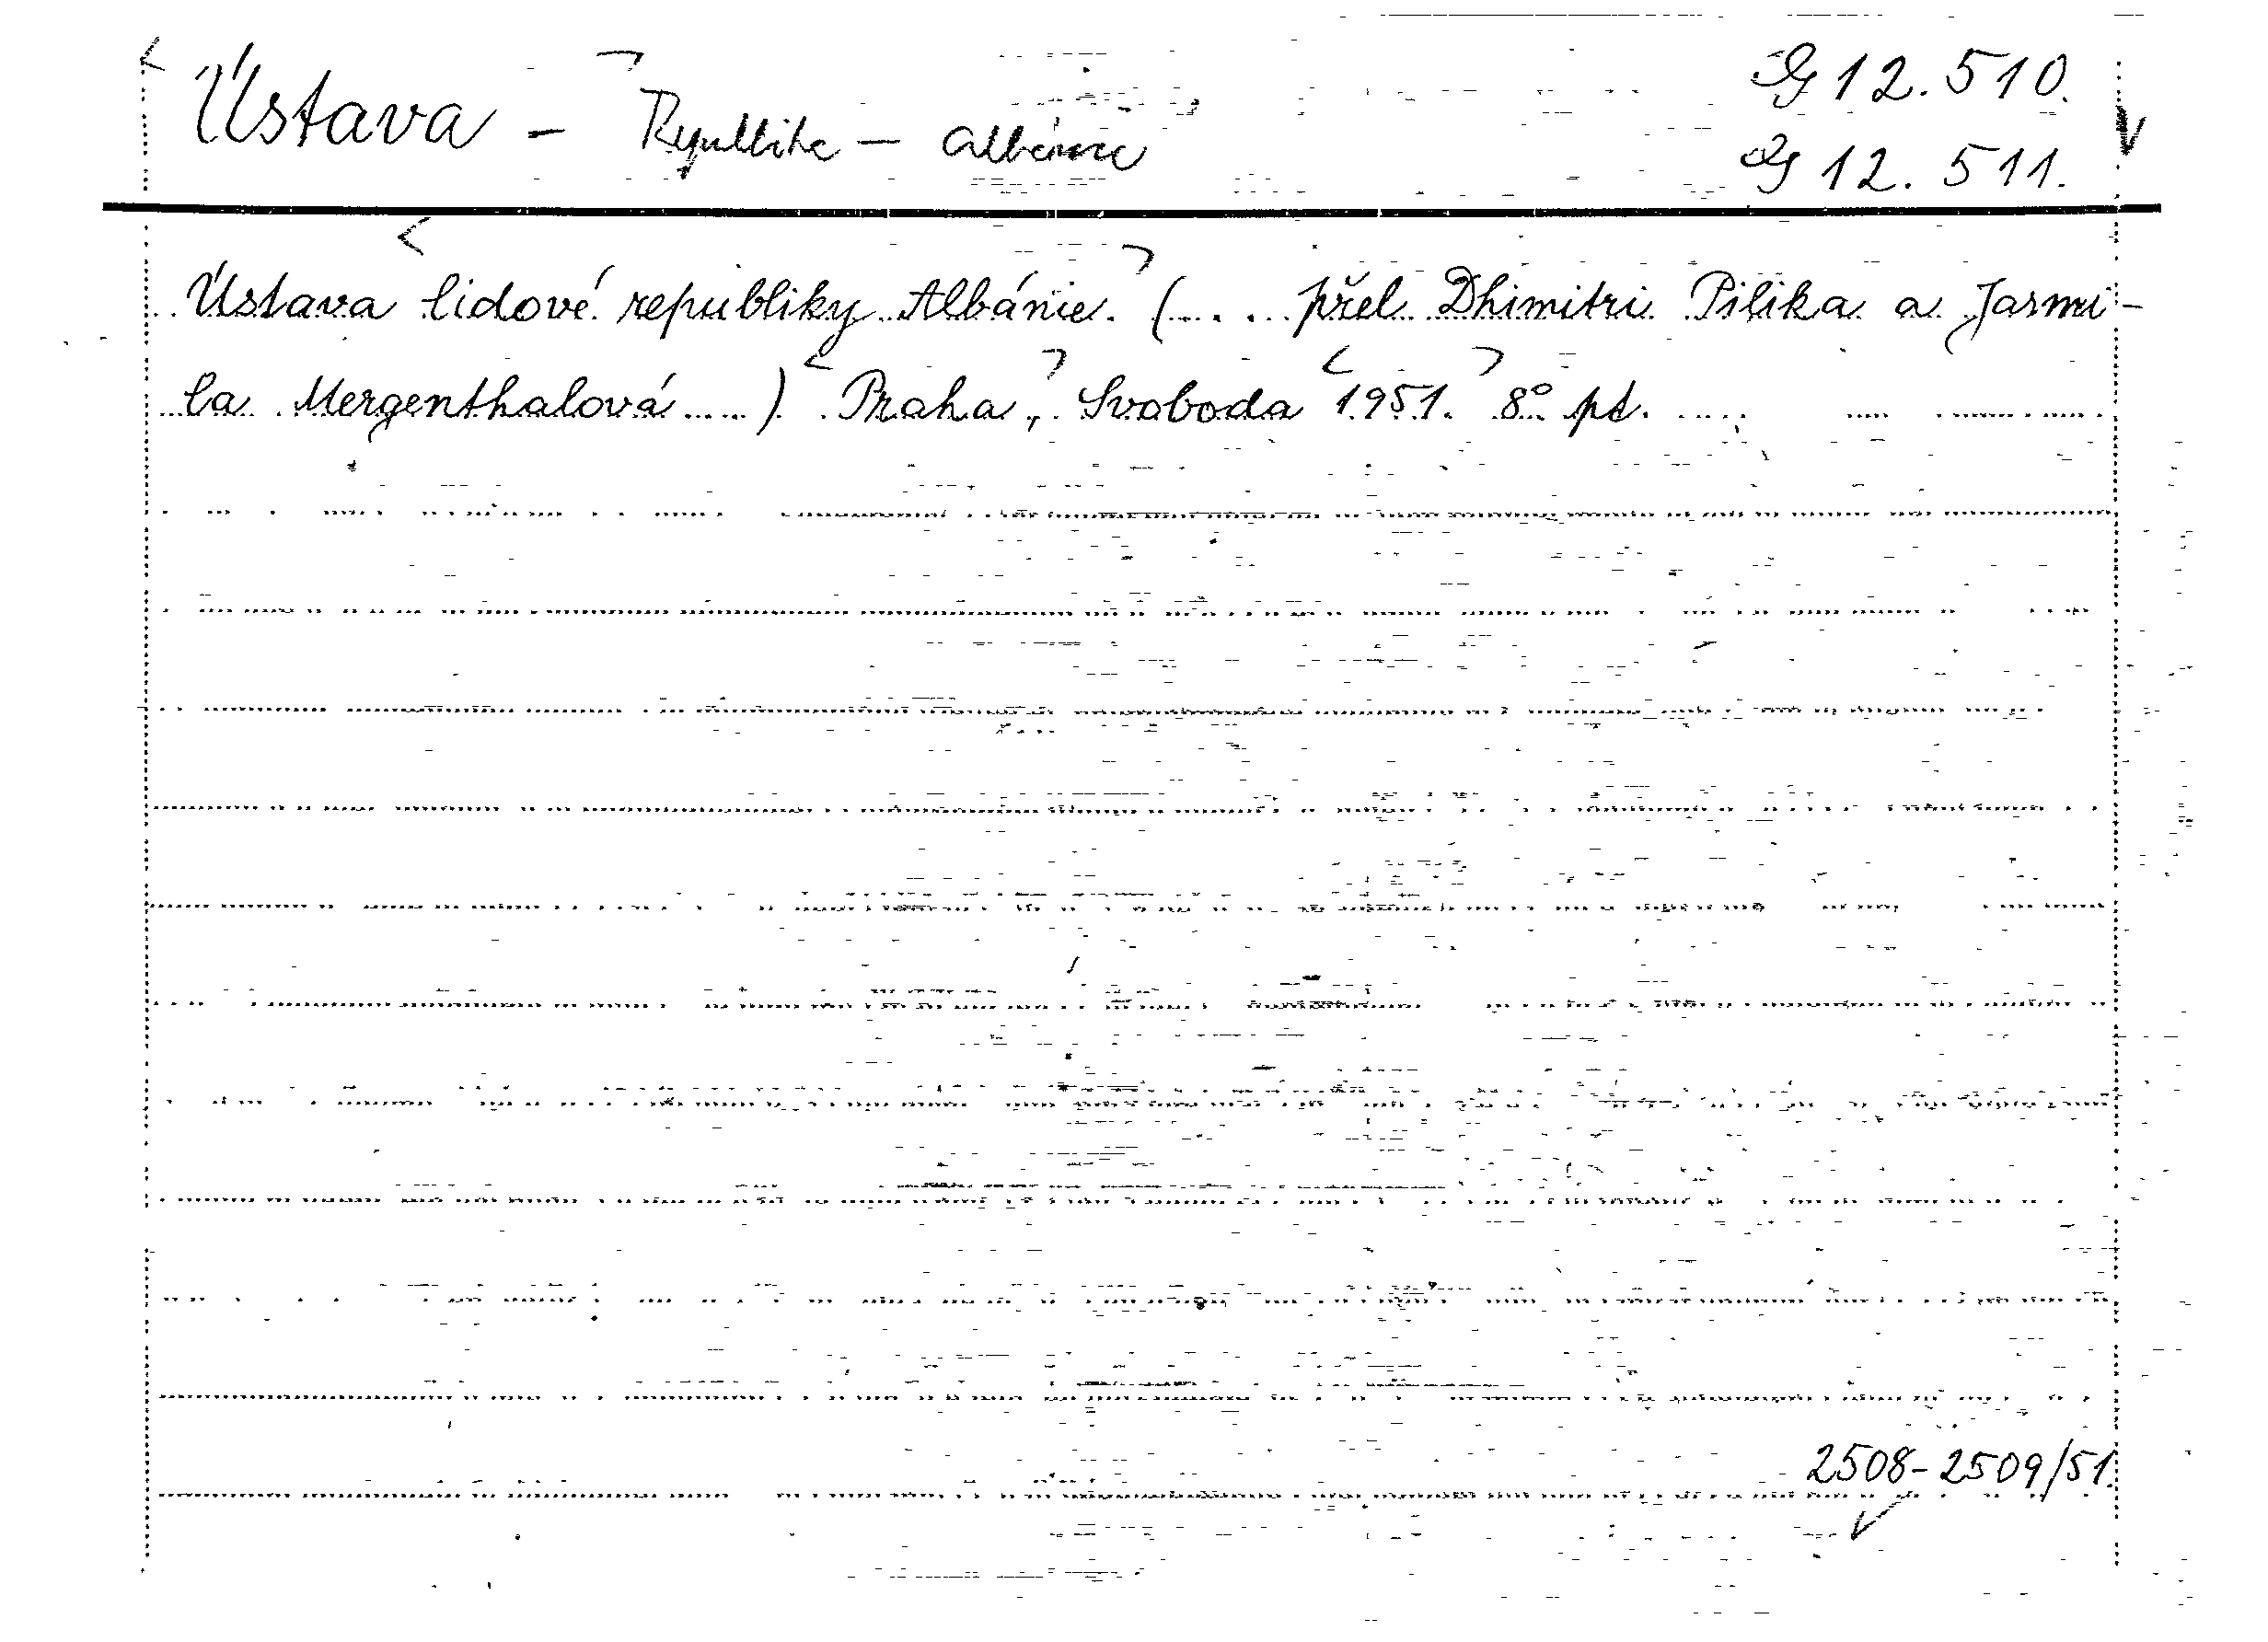 Ústava - Republika - Albánie
G 12.510.
G 12.511.
Ústava lidové republiky Albánie. (... přel Dhimitri Pilika a Jarmi-
la Mergenthalová ...) Praha, Svoboda 1951. 8° pt.
2508-2509/51.